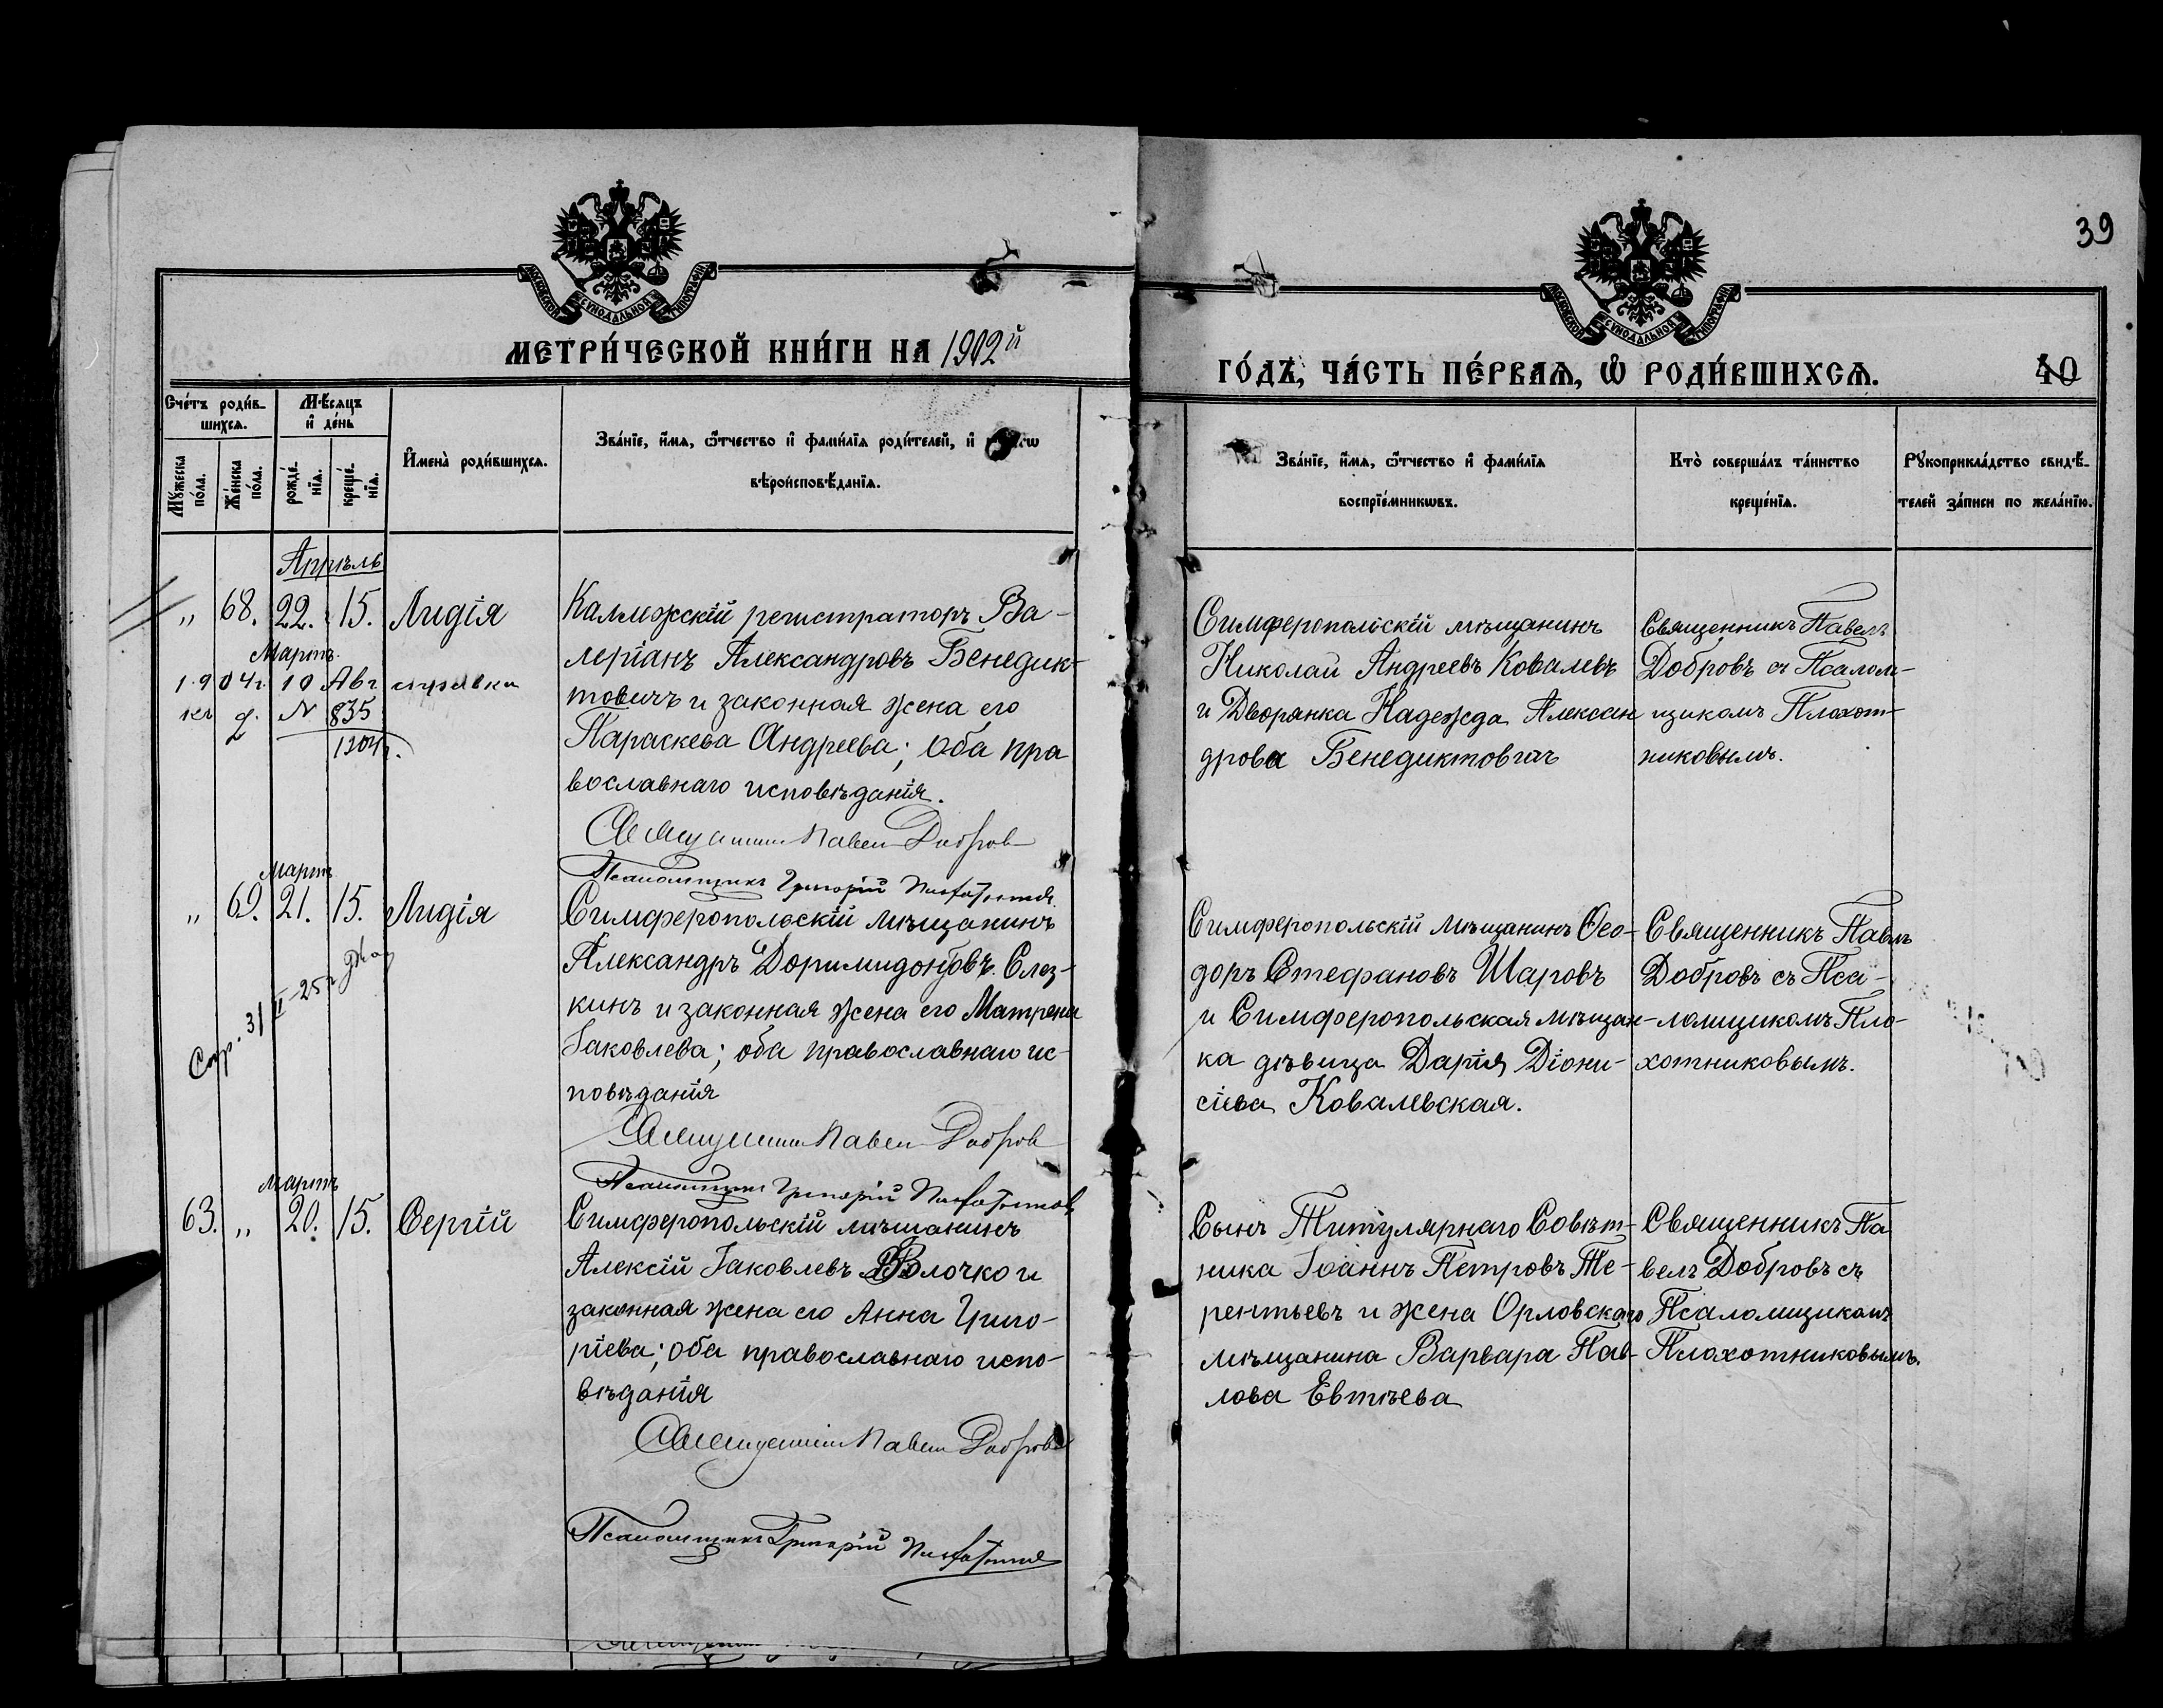 39
МОСКОВСКОЙ СѴНОДАЛЬНОЙ ТИПОГРАФІИ
МОСКОВСКОЙ СѴНОДАЛЬНОЙ ТИПОГРАФІИ
МЕТРИ́ЧЕСКОЙ КНИ́ГИ НА 1902й
ГО́ДЪ, ЧА́СТЬ ПЕ́РВАѦ, Ѡ҆ РОДИ́ВШИХСѦ.
40
Сче́тъ роди́в-
шихсѧ.
Мѣ́сѧцъ
и҆ де́нь
Мꙋ́жеска
по́ла.
Же́нска
по́ла.
рожде́-
нїѧ.
креще́-
нїѧ.
И҆мена̀ роди́вшихсѧ.
Зва́нїе, и҆́мѧ, ѻ҆́тчество и҆ фами́лїѧ роди́телей, и҆
вѣроисповѣ́данїѧ.
Зва́нїе, и҆́мѧ, ѻ҆́тчество и҆ фами́лїѧ
воспрїе́мникѡвъ.
Кто̀ соверша́лъ та́инство
креще́нїѧ.
Рꙋкоприкла́дство свидѣ́-
телей за́писи по жела́нїю.
Апрѣль
„ 68. 22. 15. Лидія
Мартъ
1904г. 10 Авг справка
№ 835
1904г.
Каллежскій регистраторъ Ва-
леріанъ Александровъ Бенедик-
товичъ и законная жена его
Параскева Андреева; оба пра
вославнаго исповѣданія.
Священникъ Павелъ Добровъ
Псаломщикъ Григорій Плохотниковъ
Симферопольскій мѣщанинъ
Николай Андреевъ Ковалевъ
и Дворянка Надежда Алексан
дрова Бенедиктовичъ
Священникъ Павелъ
Добровъ съ Псалом-
щикомъ Плохот-
никовымъ.
Мартъ
„ 69. 21. 15. Лидія
Симферопольскій мѣщанинъ
Александръ Доримидонтовъ Слез-
кинъ и законная жена его Матрена
Іаковлева; оба православнаго ис-
повѣданія
Священникъ Павелъ Добровъ
Псаломщикъ Григорій Плохотниковъ
Симферопольскій мѣщанинъ Ѳео-
доръ Стефановъ Шаровъ
и Симферопольская мѣщан-
ка дѣвица Дарія Діони-
сіева Ковалевская.
Священникъ Павелъ
Добровъ съ Пса-
ломщикомъ Пло-
хотниковымъ.
Мартъ
63. „ 20. 15. Сергій
Симферопольскій мѣщанинъ
Алексій Іаковлевъ Волочко и
законная жена его Анна Григо-
ріева; оба православнаго испо-
вѣданія
Священникъ Павелъ Добровъ
Псаломщикъ Григорій Плохотниковъ
Сынъ Титулярнаго Совѣт-
ника Іоаннъ Петровъ Те-
рентьевъ и жена Орловскаго
мѣщанина Варвара Пав-
лова Евтѣева
Священникъ Па
велъ Добровъ съ
Псаломщикомъ
Плохотниковымъ.